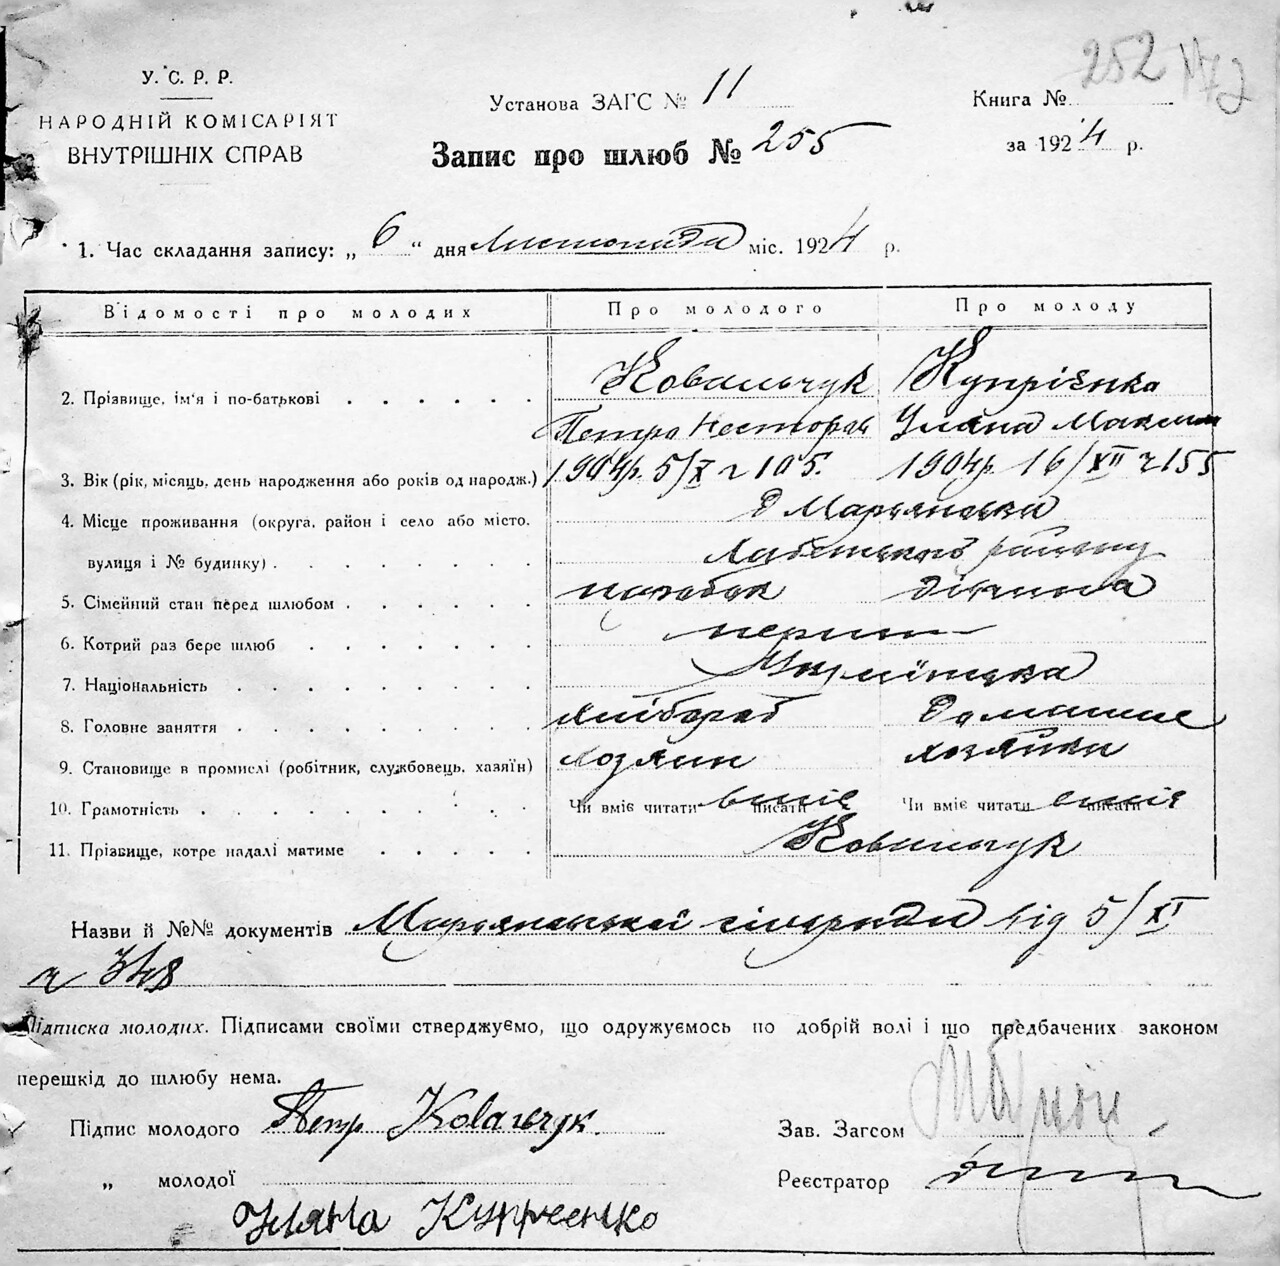 252 172
У. С. Р. Р.
НАРОДНІЙ КОМІСАРІЯТ
ВНУТРІШНІХ СПРАВ
Установа ЗАГС № 11
Запис про шлюб № 255
Книга №
за 1924 р.
1. Час складання запису: „ 6 “ дня Листопада міс. 1924 р.
Відомості про молодих Про молодого Про молоду
Ковальчук Купріенка
2. Прізвище, ім'я і по-батькові
Петро Нестеров Уляна Максим
3. Вік (рік, місяць, день народження або років од народж.) 1904р. 5/X ч 105. 1904р. 16/XII ч 155
4. Місце проживання (округа, район і село або місто, Д Мар'янська
вулиця і № будинку) району
5. Сімейний стан перед шлюбом парубок дівчина
6. Котрий раз бере шлюб перши
7. Національність Українська
8. Головне заняття хлібороб Домашне
9. Становище в промислі (робітник, службовець, хазяїн) хозяин хозяйка
10. Грамотність Чи вміє читати писати вміє Чи вміє читати писати вміє
11. Прізвище, котре надалі матиме Ковальчук
Назви й №№ документів Мар'янської сільради від 5/XI
ч 348
Підписка молодих. Підписами своїми стверджуємо, що одружуємось по добрій волі і що предбачених законом
перешкід до шлюбу нема.
Підпис молодого Петр Ковальчук.
Зав. Загсом
„ молодої
Реєстратор
Уляна Купреенко